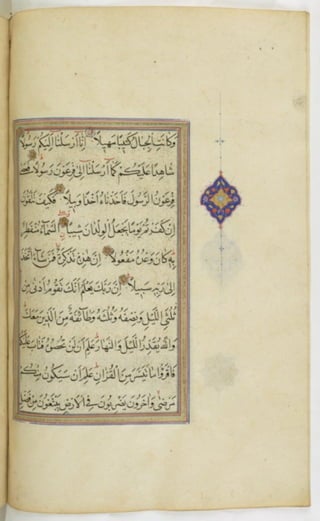 وَكَانَتِ الْجِبَالُ كَثِيبًا مَهِيلًا إِنَّا أَرْسَلْنَا إِلَيْكُمْ رَسُولًا
شَاهِدًا عَلَيْكُمْ كَمَا أَرْسَلْنَا إِلَى فِرْعَوْنَ رَسُولًا فَعَصَى
فِرْعَوْنُ الرَّسُولَ فَأَخَذْنَاهُ أَخْذًا وَبِيلًا فَكَيْفَ تَتَّقُونَ
إِنْ كَفَرْتُمْ يَوْمًا يَجْعَلُ الْوِلْدَانَ شِيبًا السَّمَاءُ مُنْفَطِرٌ
بِهِ كَانَ وَعْدُهُ مَفْعُولًا إِنَّ هَذِهِ تَذْكِرَةٌ فَمَنْ شَاءَ اتَّخَذَ
إِلَى رَبِّهِ سَبِيلًا إِنَّ رَبَّكَ يَعْلَمُ أَنَّكَ تَقُومُ أَدْنَى مِنْ
ثُلُثَيِ اللَّيْلِ وَنِصْفَهُ وَثُلُثَهُ وَطَائِفَةٌ مِنَ الَّذِينَ مَعَكَ
وَاللَّهُ يُقَدِّرُ اللَّيْلَ وَالنَّهَارَ عَلِمَ أَنْ لَنْ تُحْصُوهُ فَتَابَ عَلَيْكُمْ
فَاقْرَءُوا مَا تَيَسَّرَ مِنَ الْقُرْآنِ عَلِمَ أَنْ سَيَكُونُ مِنْكُمْ
مَرْضَى وَآخَرُونَ يَضْرِبُونَ فِي الْأَرْضِ يَبْتَغُونَ مِنْ فَضْلِ